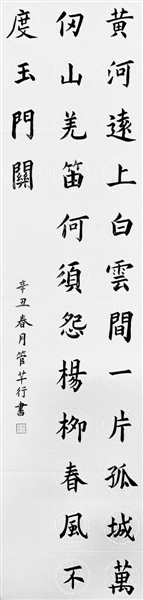 黃河遠上白雲間一片孤城萬
仞山羌笛何須怨楊栁春風不
度玉門關
辛丑春月管苹行書